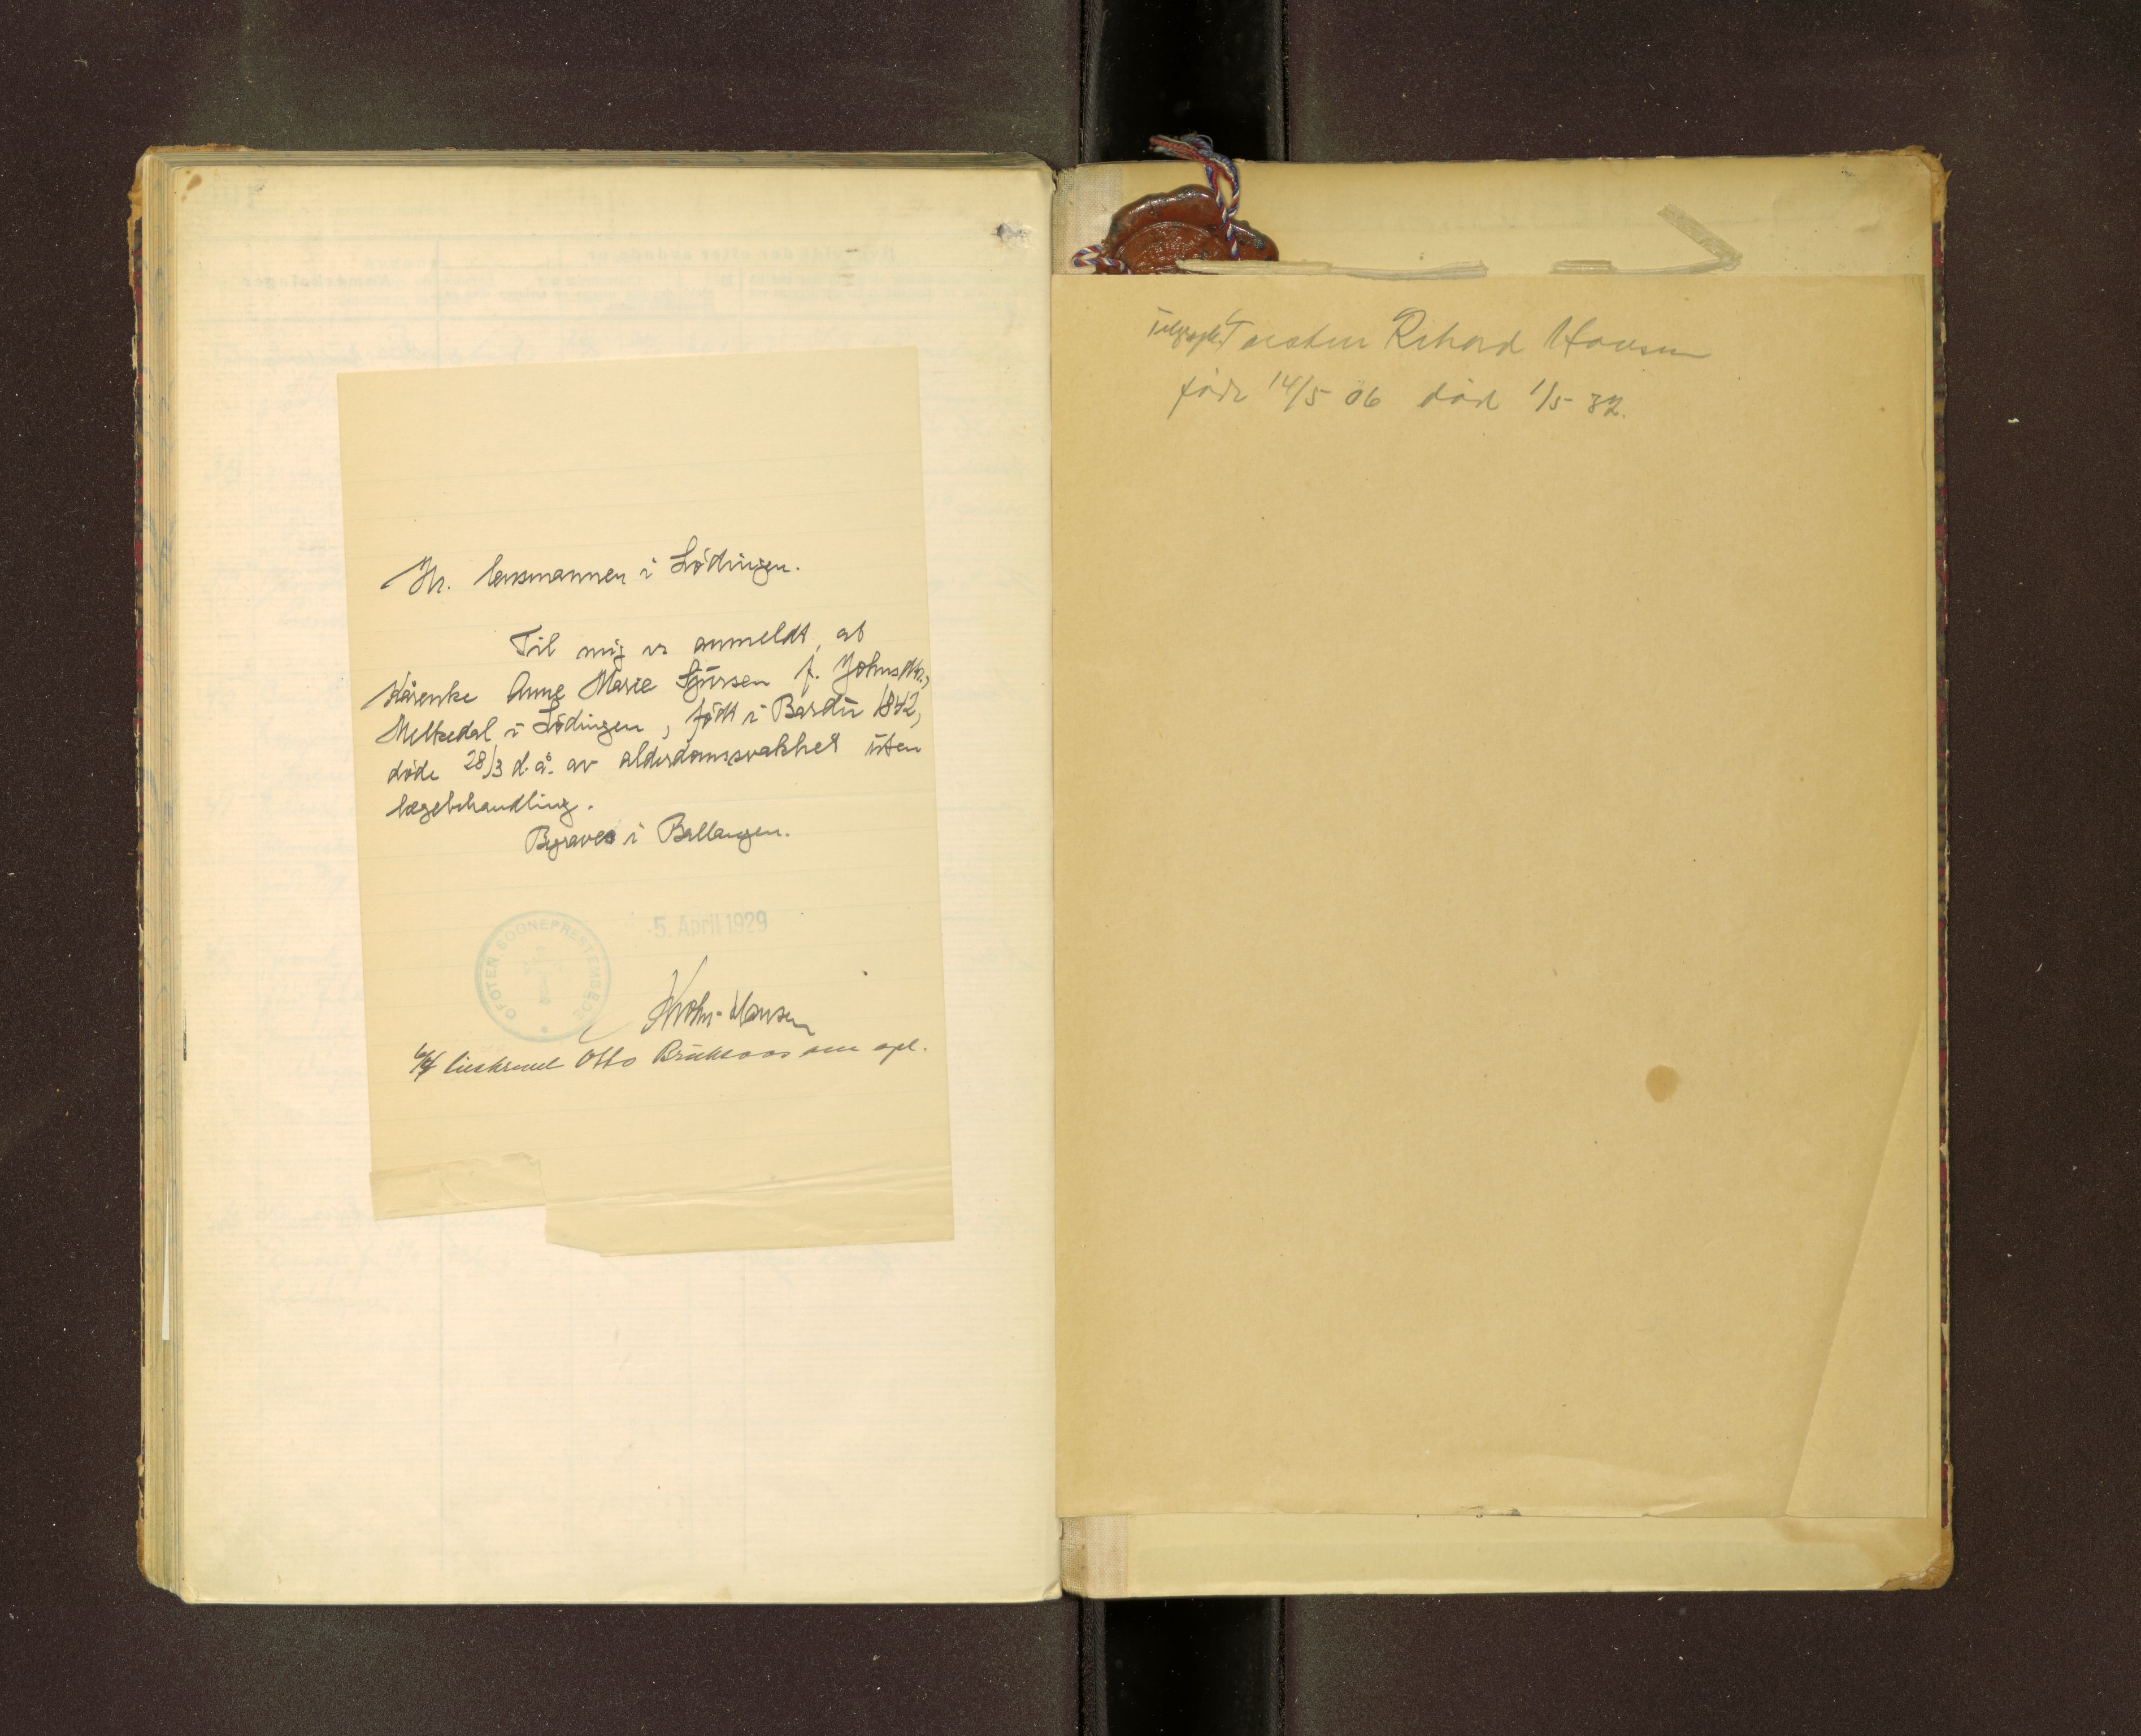 Hr. lensmannen i Lødingen.
Til mig er anmeldt, at
kårenke Anne Marie Sjursen f. Johnsdtr.,
Melkedal i Lødingen, født i Bardu 1842,
døde 28/3 d.å. av alderdomssvakhet uten
lægebehandling.
Begraves i Ballangen.
5. April 1929
OFOTEN SOGNEPRESTEMBEDE
Krohn-Hansen
Otto om opl.
Torsten Rikard Hansen
født 14/5 06 død 1/5 32.